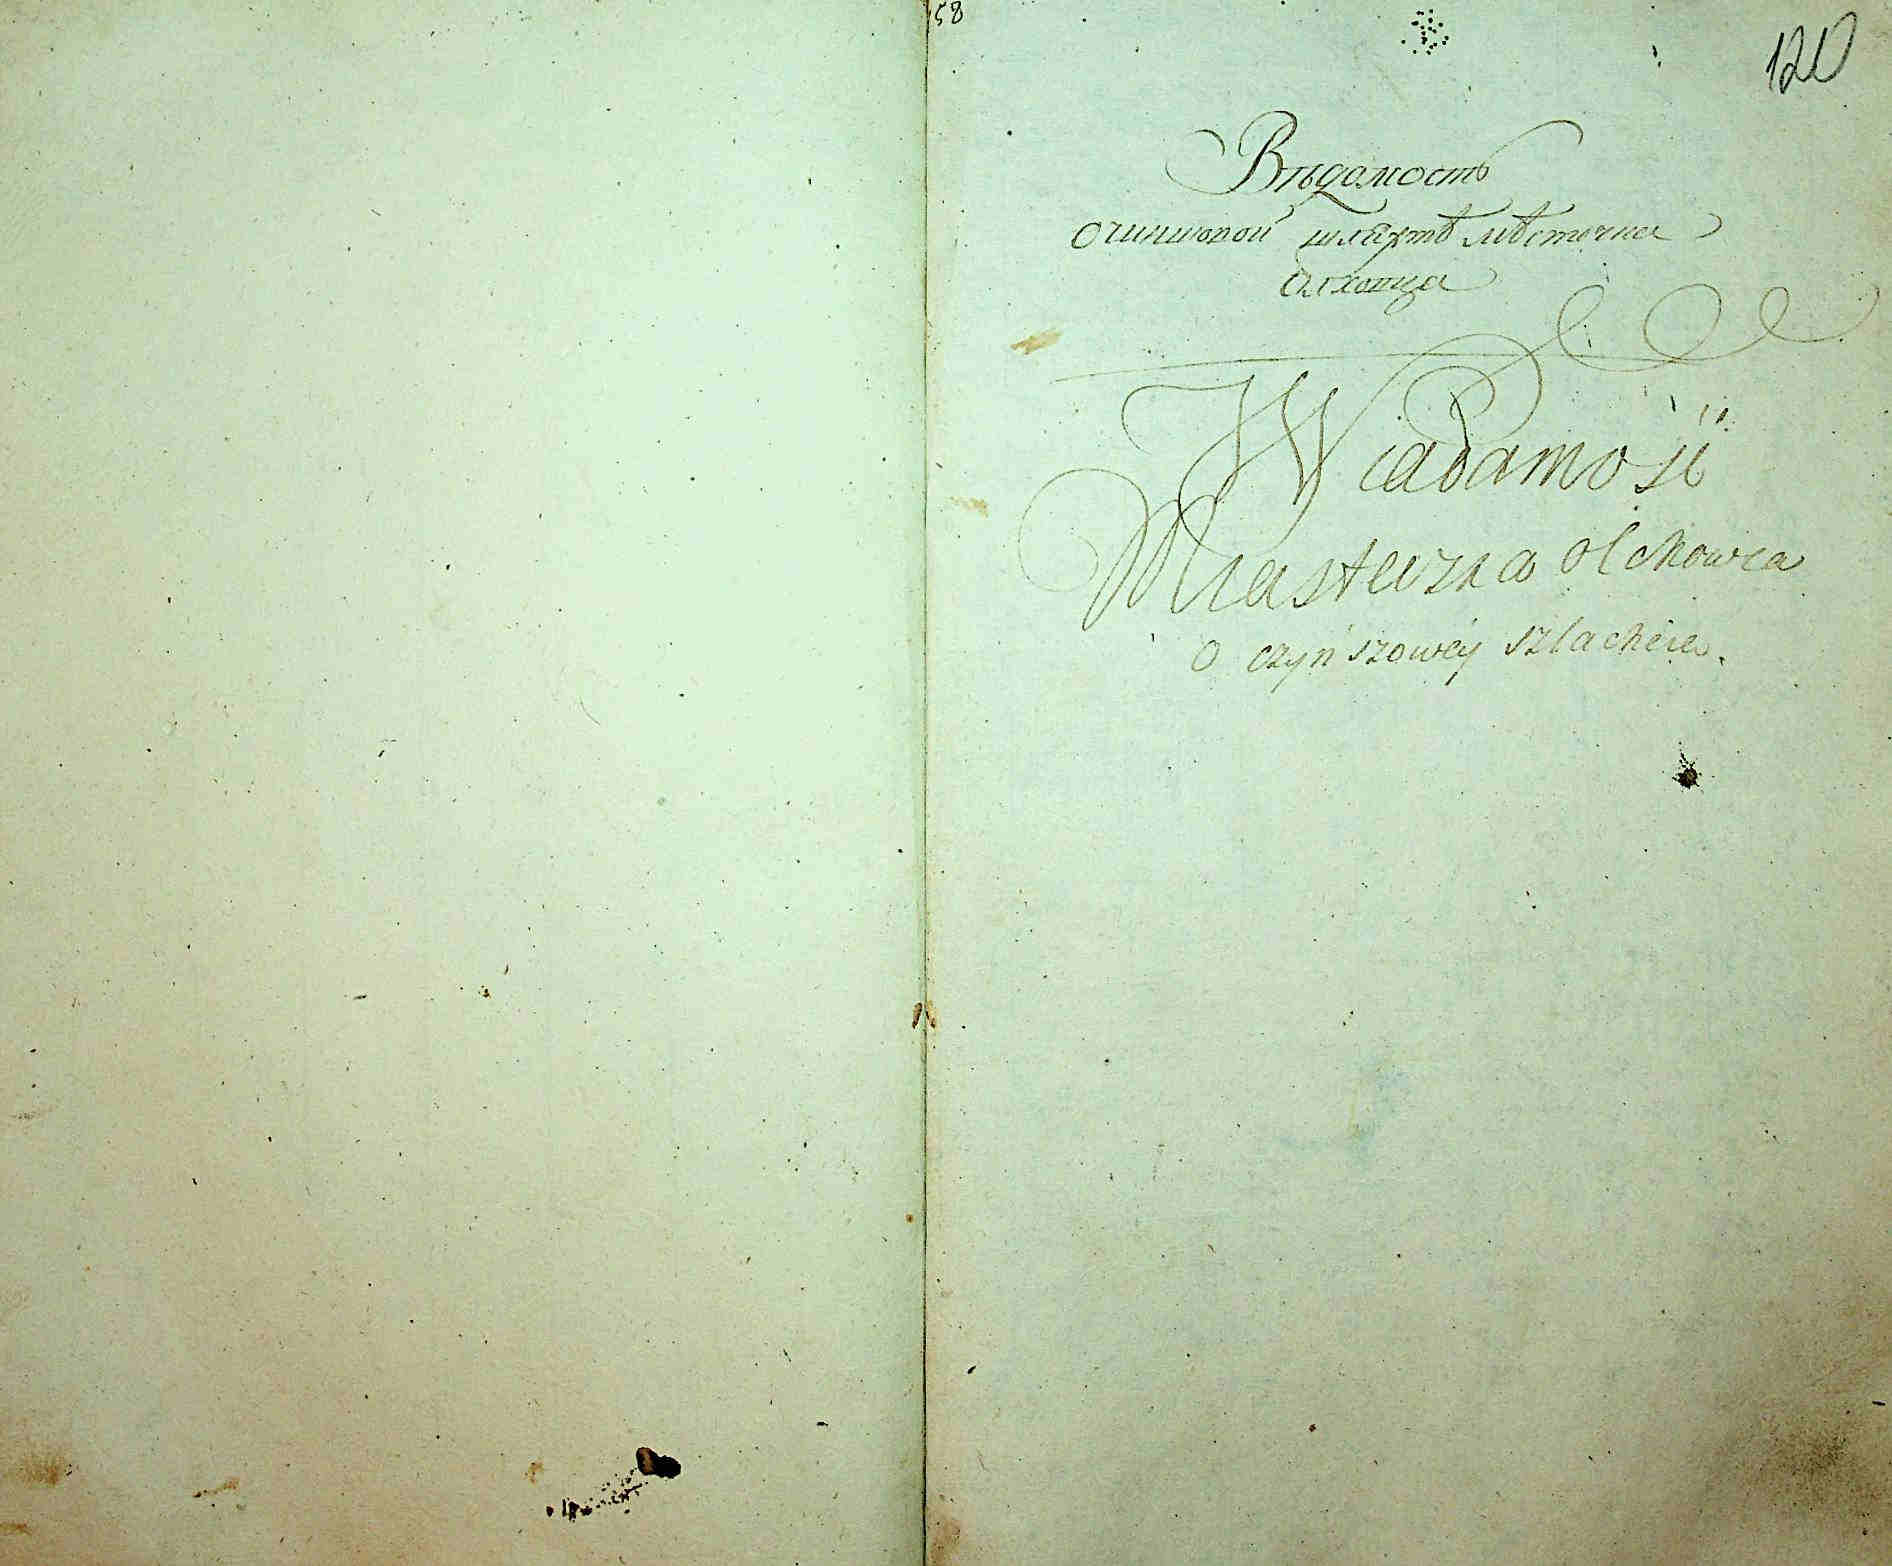 58
120
Вѣдомость
о чиншовой шляхтѣ мѣстечка
Олховца
Wiadamość
Miasteczka Olchowca
o czynszowéy szlachcie.